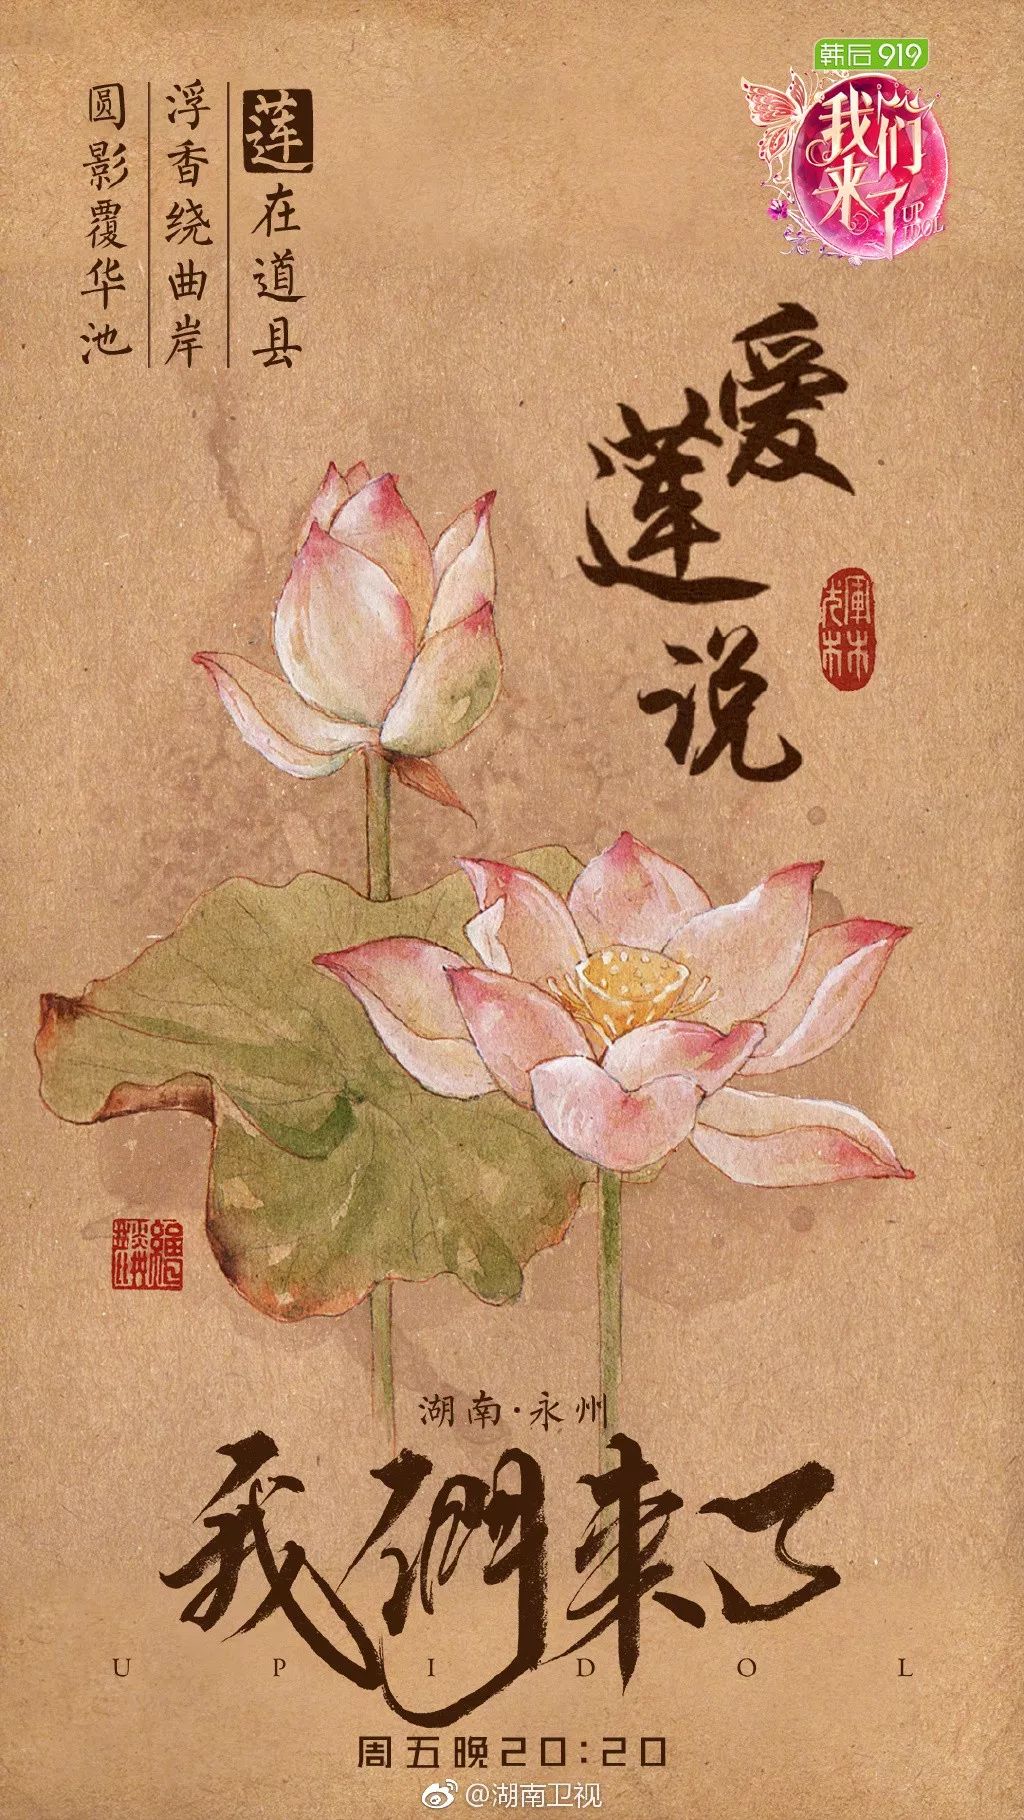 韩后919
我们来了
UP IDOL
莲在道县
浮香绕曲岸
圆影覆华池
爱莲说
湖南·永州
我們来了
UPIDOL
周五晚20:20
@湖南卫视